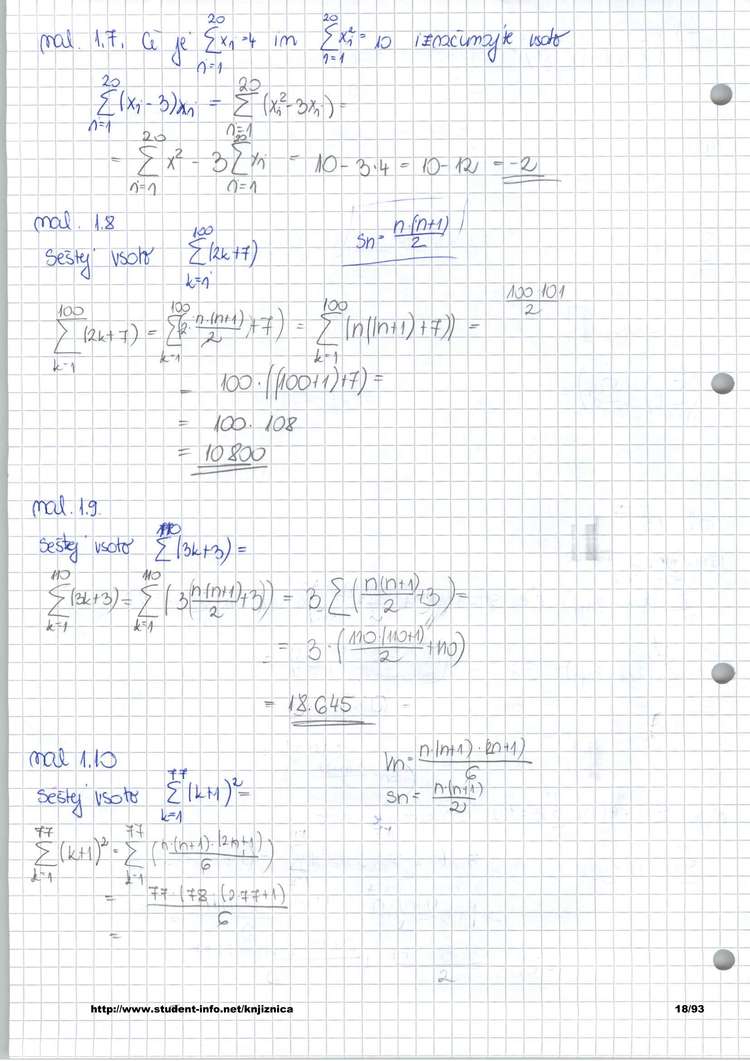 nal. 1.7. Če je \sum_{n=1}^{20} x_i = 4 in \sum_{i=1}^{20} x_i^2 = 10 izračunajte vsoto
\sum_{n=1}^{20} (x_i - 3)x_i = \sum_{n=1}^{20} (x_i^2 - 3x_i) =
= \sum_{n=1}^{20} x^2 - 3 \sum_{n=1}^{20} x_i = 10 - 3·4 = 10 - 12 = -2
nal. 1.8
Seštej vsoto \sum_{k=1}^{100} (2k+7)
Sn = \frac{n·(n+1)}{2}
\sum_{k=1}^{100} (2k+7) = \sum_{k=1}^{100} (2·\frac{n·(n+1)}{2}+7) = \sum_{k=1}^{100} (n((n+1)+7)) =
\frac{100·101}{2}
= 100·((100+1)+7) =
= 100·108
= 10800
nal. 1.9.
seštej vsoto \sum^{110} (3k+3) =
\sum_{k=1}^{110} (3k+3) = \sum_{k=1}^{110} (3(\frac{n(n+1)}{2}+3)) = 3 \sum (\frac{n(n+1)}{2}+3) =
= 3·(\frac{110·(110+1)}{2}+110)
= 18.645
nal 1.10
seštej vsoto \sum_{k=1}^{77} (k+1)^2 =
Vn = \frac{n·(n+1)·(2n+1)}{6}
Sn = \frac{n·(n+1)}{2}
\sum_{k=1}^{77} (k+1)^2 = \sum_{k=1}^{77} (\frac{n·(n+1)·(2n+1)}{6})
= \frac{77·(78·(2·77+1)}{6}
=
2
http://www.student-info.net/knjiznica
18/93